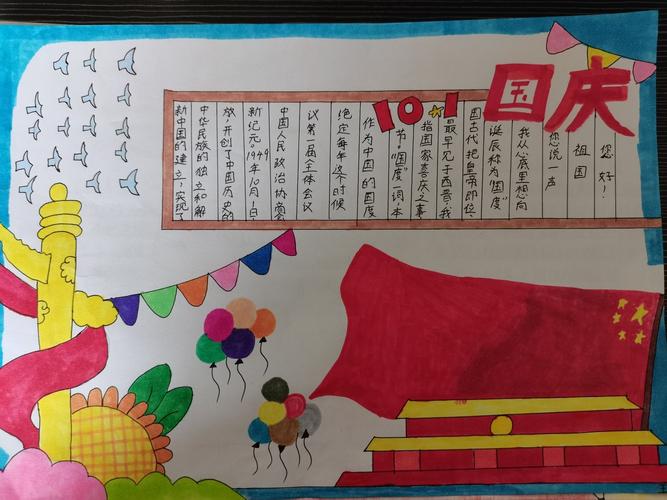 国庆
10 1
新中国的建立，实现了
中华民族的独立和解
放，开创了中国历史的
新纪元。1949年10月1日，
中国人民政治协商会
议第一届全体会议
绝定每年这个时候
作为中国的国度
节。“国度”一词，本
指国家喜庆之事、
最早见于西晋。我
国古代把皇帝即位、
诞辰称为“国度”
我从心底里想向
您说一声
祖国
您好！